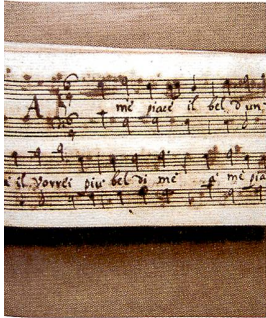 A me piace il bel d'un
il vorrei piu bel di me a me pia